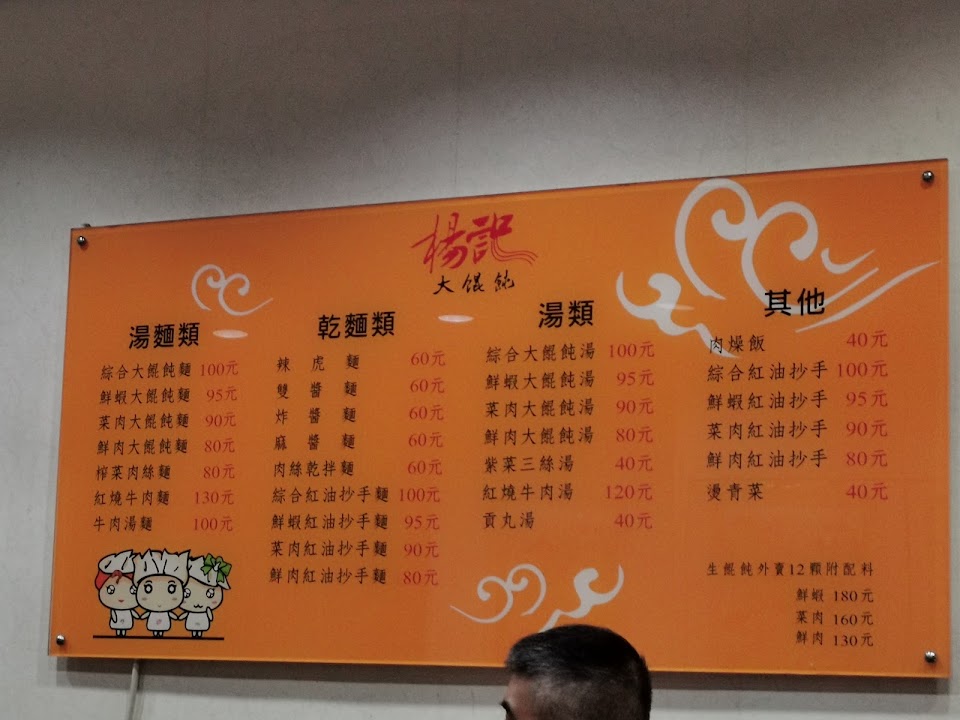 楊記
大餛飩
湯麵類
綜合大餛飩麵 100元
鮮蝦大餛飩麵 95元
菜肉大餛飩麵 90元
鮮肉大餛飩麵 80元
榨菜肉絲麵 80元
紅燒牛肉麵 130元
牛肉湯麵 100元
乾麵類
辣虎麵 60元
雙醬麵 60元
炸醬麵 60元
麻醬麵 60元
肉絲乾拌麵 60元
綜合紅油抄手麵 100元
鮮蝦紅油抄手麵 95元
菜肉紅油抄手麵 90元
鮮肉紅油抄手麵 80元
湯類
綜合大餛飩湯 100元
鮮蝦大餛飩湯 95元
菜肉大餛飩湯 90元
鮮肉大餛飩湯 80元
紫菜三絲湯 40元
紅燒牛肉湯 120元
貢丸湯 40元
其他
肉燥飯 40元
綜合紅油抄手 100元
鮮蝦紅油抄手 95元
菜肉紅油抄手 90元
鮮肉紅油抄手 80元
燙青菜 40元
生餛飩外賣12顆附配料
鮮蝦 180元
菜肉 160元
鮮肉 130元